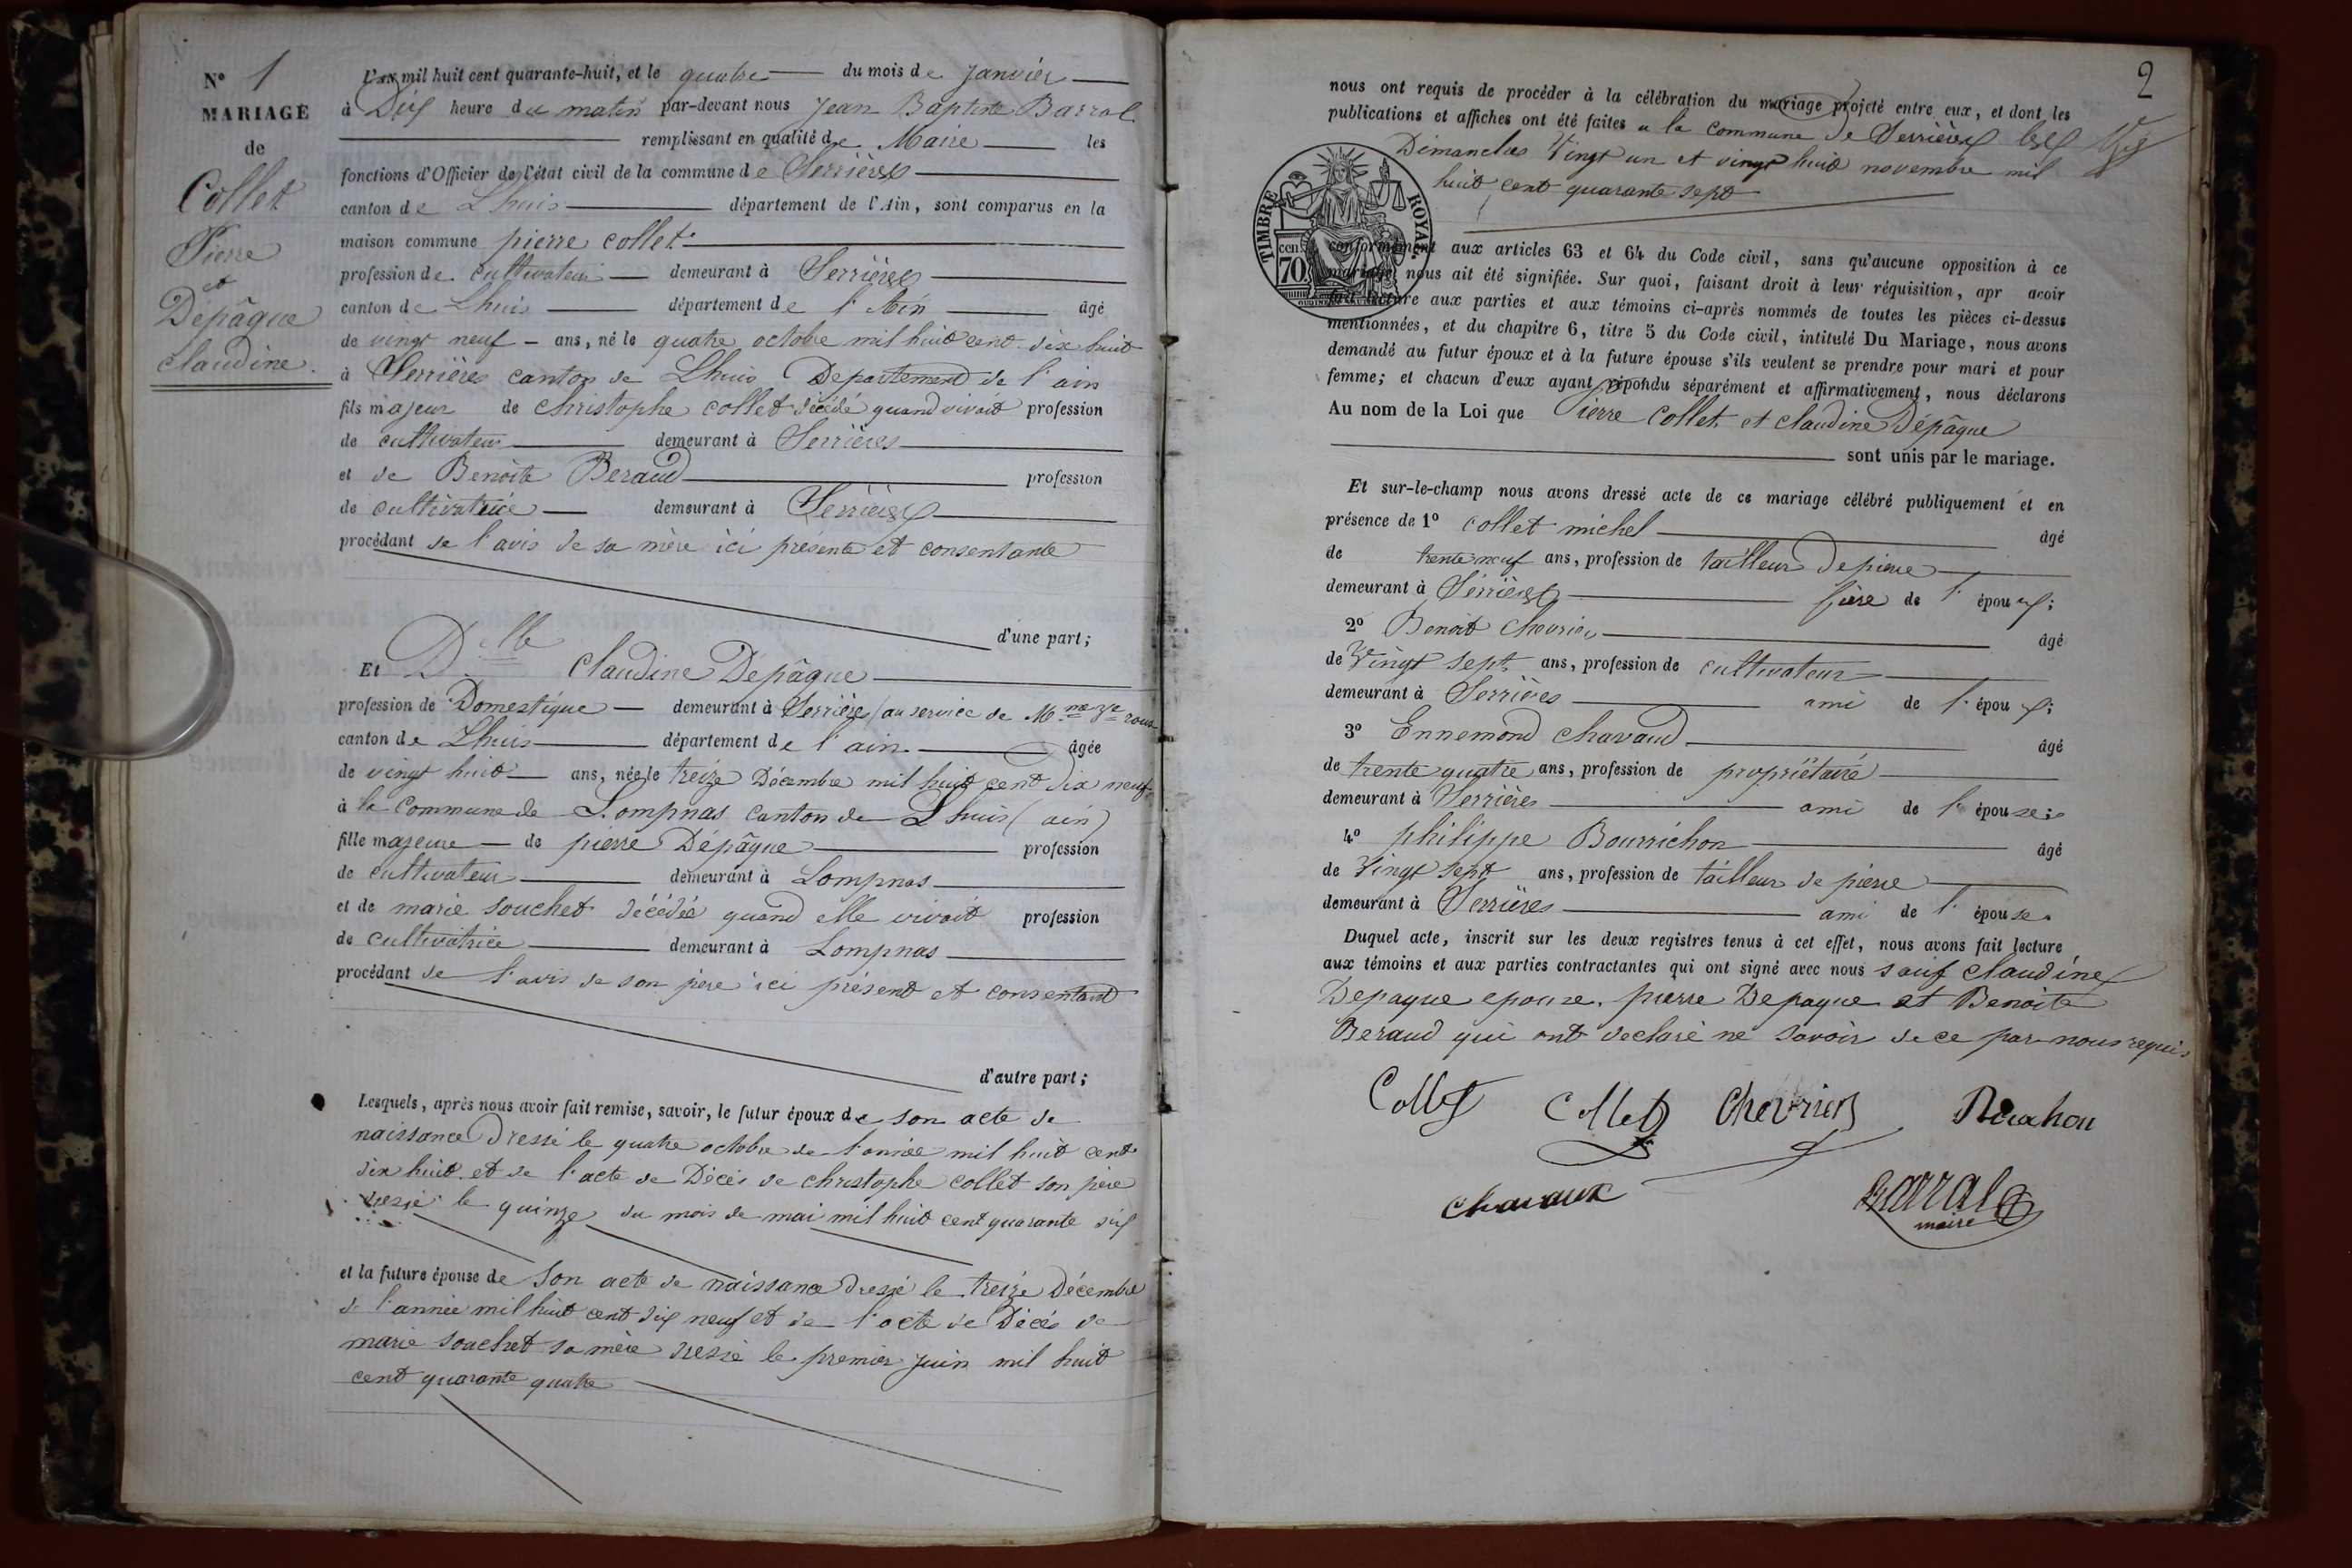 N° 1
MARIAGE
de
Collet
Pierre
et
Dépâque
Claudine.
L'an mil huit cent quarante-huit, et le quatre du mois de Janvier
à Dix heure du matin par-devant nous Jean Baptiste Barral
remplissant en qualité de Maire les
fonctions d'Officier de l'état civil de la commune de Serrières
canton de Lhuis département de l'Ain, sont comparus en la
maison commune pierre collet
profession de cultivateur demeurant à Serrières
canton de Lhuis département de l'Ain âgé
de vingt neuf ans, né le quatre octobre mil huit cent dix huit
à Serrières canton de Lhuis Departement de l'ain
fils majeur de christophe collet décédé quand vivait profession
de cultivateur demeurant à Serrières
et de Benoite Beraud profession
de cultivatrice demeurant à Serrières
procédant de l'avis de sa mère ici présente et consentante
d'une part;
Et Dlle Claudine Dépâque
profession de Domestique demeurant à Serrières (au service de Mme
canton de Lhuis département de l'ain âgée
de vingt huit ans, née le treize Décembre mil huit cent Dix neuf
à la Commune de Lompnas canton de Lhuis (ain)
fille majeure de pierre Dépâque profession
de cultivateur demeurant à Lompnas
et de marie souchet décédée quand elle vivait profession
de cultivatrice demeurant à Lompnas
procédant de l'avis de son père ici présent et consentant
d'autre part;
Lesquels, après nous avoir fait remise, savoir, le futur époux de son acte de
naissance Dressé le quatre octobre de l'année mil huit cent
dix huit et de l'acte de Décès de christophe collet son père
dressé le quinze du mois de mai mil huit cent quarante six
et la future épouse de son acte de naissance dressé le treize Décembre
de l'année mil huit cent dix neuf et de l'acte de Décés de
marie souchet sa mère dressé le premier juin mil huit
cent quarante quatre
2
nous ont requis de procéder à la célébration du mariage projeté entre eux, et dont les
publications et affiches ont été faites a la commune de Serrières les
Dimanches Vingt un et vingt huit novembre mil
huit cent quarante sept
TIMBRE ROYAL.
70 cent
conformément aux articles 63 et 64 du Code civil, sans qu'aucune opposition à ce
mariage nous ait été signifiée. Sur quoi, faisant droit à leur réquisition, apr avoir
fait lecture aux parties et aux témoins ci-après nommés de toutes les pièces ci-dessus
mentionnées, et du chapitre 6, titre 5 du Code civil, intitulé Du Mariage, nous avons
demandé au futur époux et à la future épouse s'ils veulent se prendre pour mari et pour
femme; et chacun d'eux ayant répondu séparément et affirmativement, nous déclarons
Au nom de la Loi que Pierre Collet et claudine Dépâque
sont unis par le mariage.
Et sur-le-champ nous avons dressé acte de ce mariage célébré publiquement et en
présence de 1° collet michel âgé
de trente neuf ans, profession de tailleur de pierre
demeurant à Serrières frère de l'époux;
2° Benoit Chevrier âgé
de Vingt sept ans, profession de cultivateur
demeurant à Serrières ami de l'époux;
3° Ennemond Chavaud âgé
de trente quatre ans, profession de propriétaire
demeurant à Serrières ami de l'épouse;
4° philippe Bourrichon âgé
de Vingt sept ans, profession de tailleur de pierre
demeurant à Serrières ami de l'épouse.
Duquel acte, inscrit sur les deux registres tenus à cet effet, nous avons fait lecture
aux témoins et aux parties contractantes qui ont signé avec nous sauf claudine
Depaque epouse, pierre Depaque et Benoite
Beraud qui ont declaré ne savoir de ce par nous requis
Collet Collet Chevrier
Chavaux Barral
maire